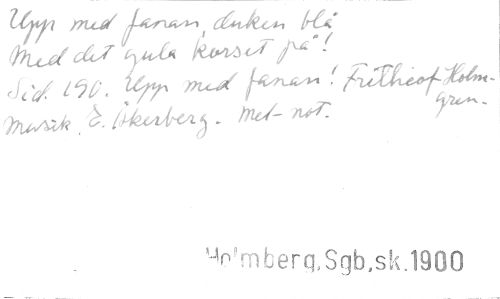 Upp med fanan, duken blå
Med det gula korset på!
Sid. 190. Upp med fanan! Frithiof Holm-
gren.
Musik E. Åkerberg. Met-not.
Holmberg,Sgb,sk.1900